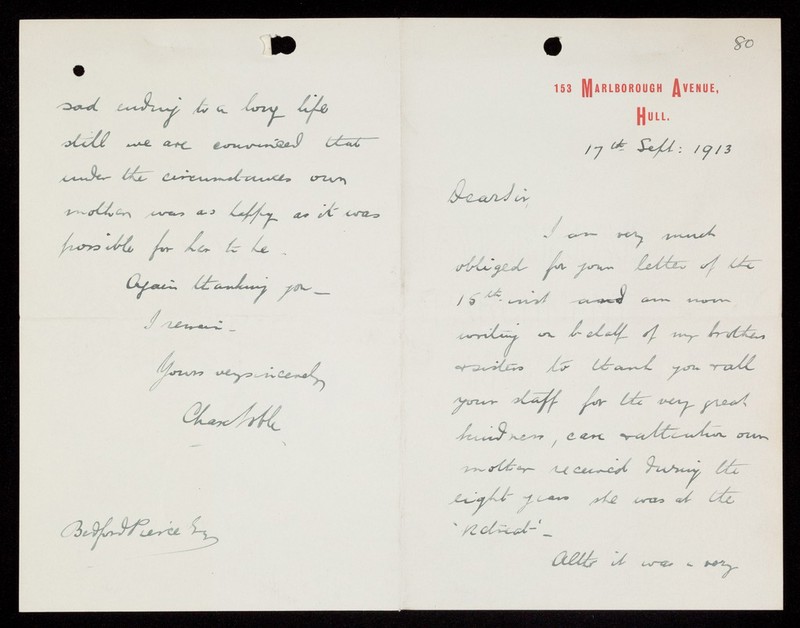 80
153 MARLBOROUGH AVENUE,
HULL.
17th Sept: 1913
Dear Sir,
I am very much
obliged for your letter of the
15th inst and am now
writing on behalf of my brothers
& sisters to thank you & all
your staff for the very great
kindness, care & attention our
mother received during the
eight years she was at the
'Retreat' –
Altho it was a very
sad ending to a long life
still we are convinced that
under the circumstances our
mother was as happy as it was
possible for her to be.
Again thanking you –
I remain –
Yours very sincerely
Chas Noble
Bedford Pierce Esq